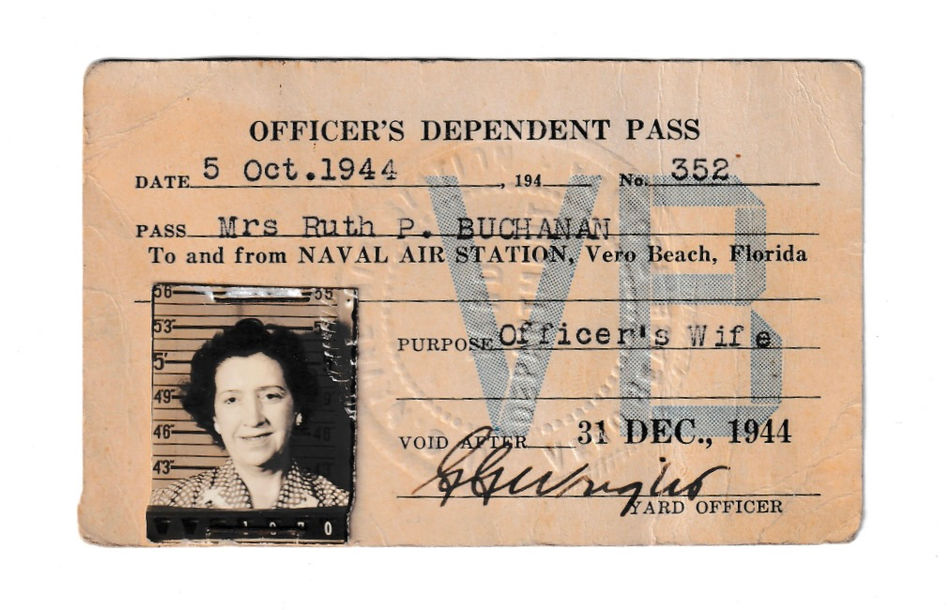 OFFICER'S DEPENDENT PASS
DATE 5 Oct.1944, 194 No. 352
PASS Mrs Ruth P. BUCHANAN
To and from NAVAL AIR STATION, Vero Beach, Florida
VB
56 55
53
5'
49
46 46
43
1 0 7 0
PURPOSE Officer's Wife
VOID AFTER 31 DEC., 1944
Wright
YARD OFFICER